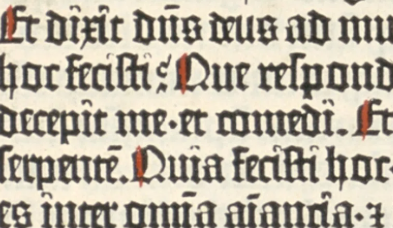 Et dixit dñs deus ad mu
hoc fecisti? Que respond
decepit me·et comedi. Et
serpentē. Quia fecisti hoc·
es inter omīa aīancia·⁊